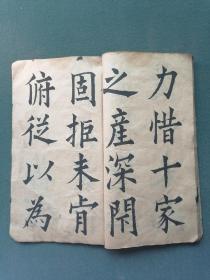 力惜十家
之産深閇
固拒未肯
俯從以為